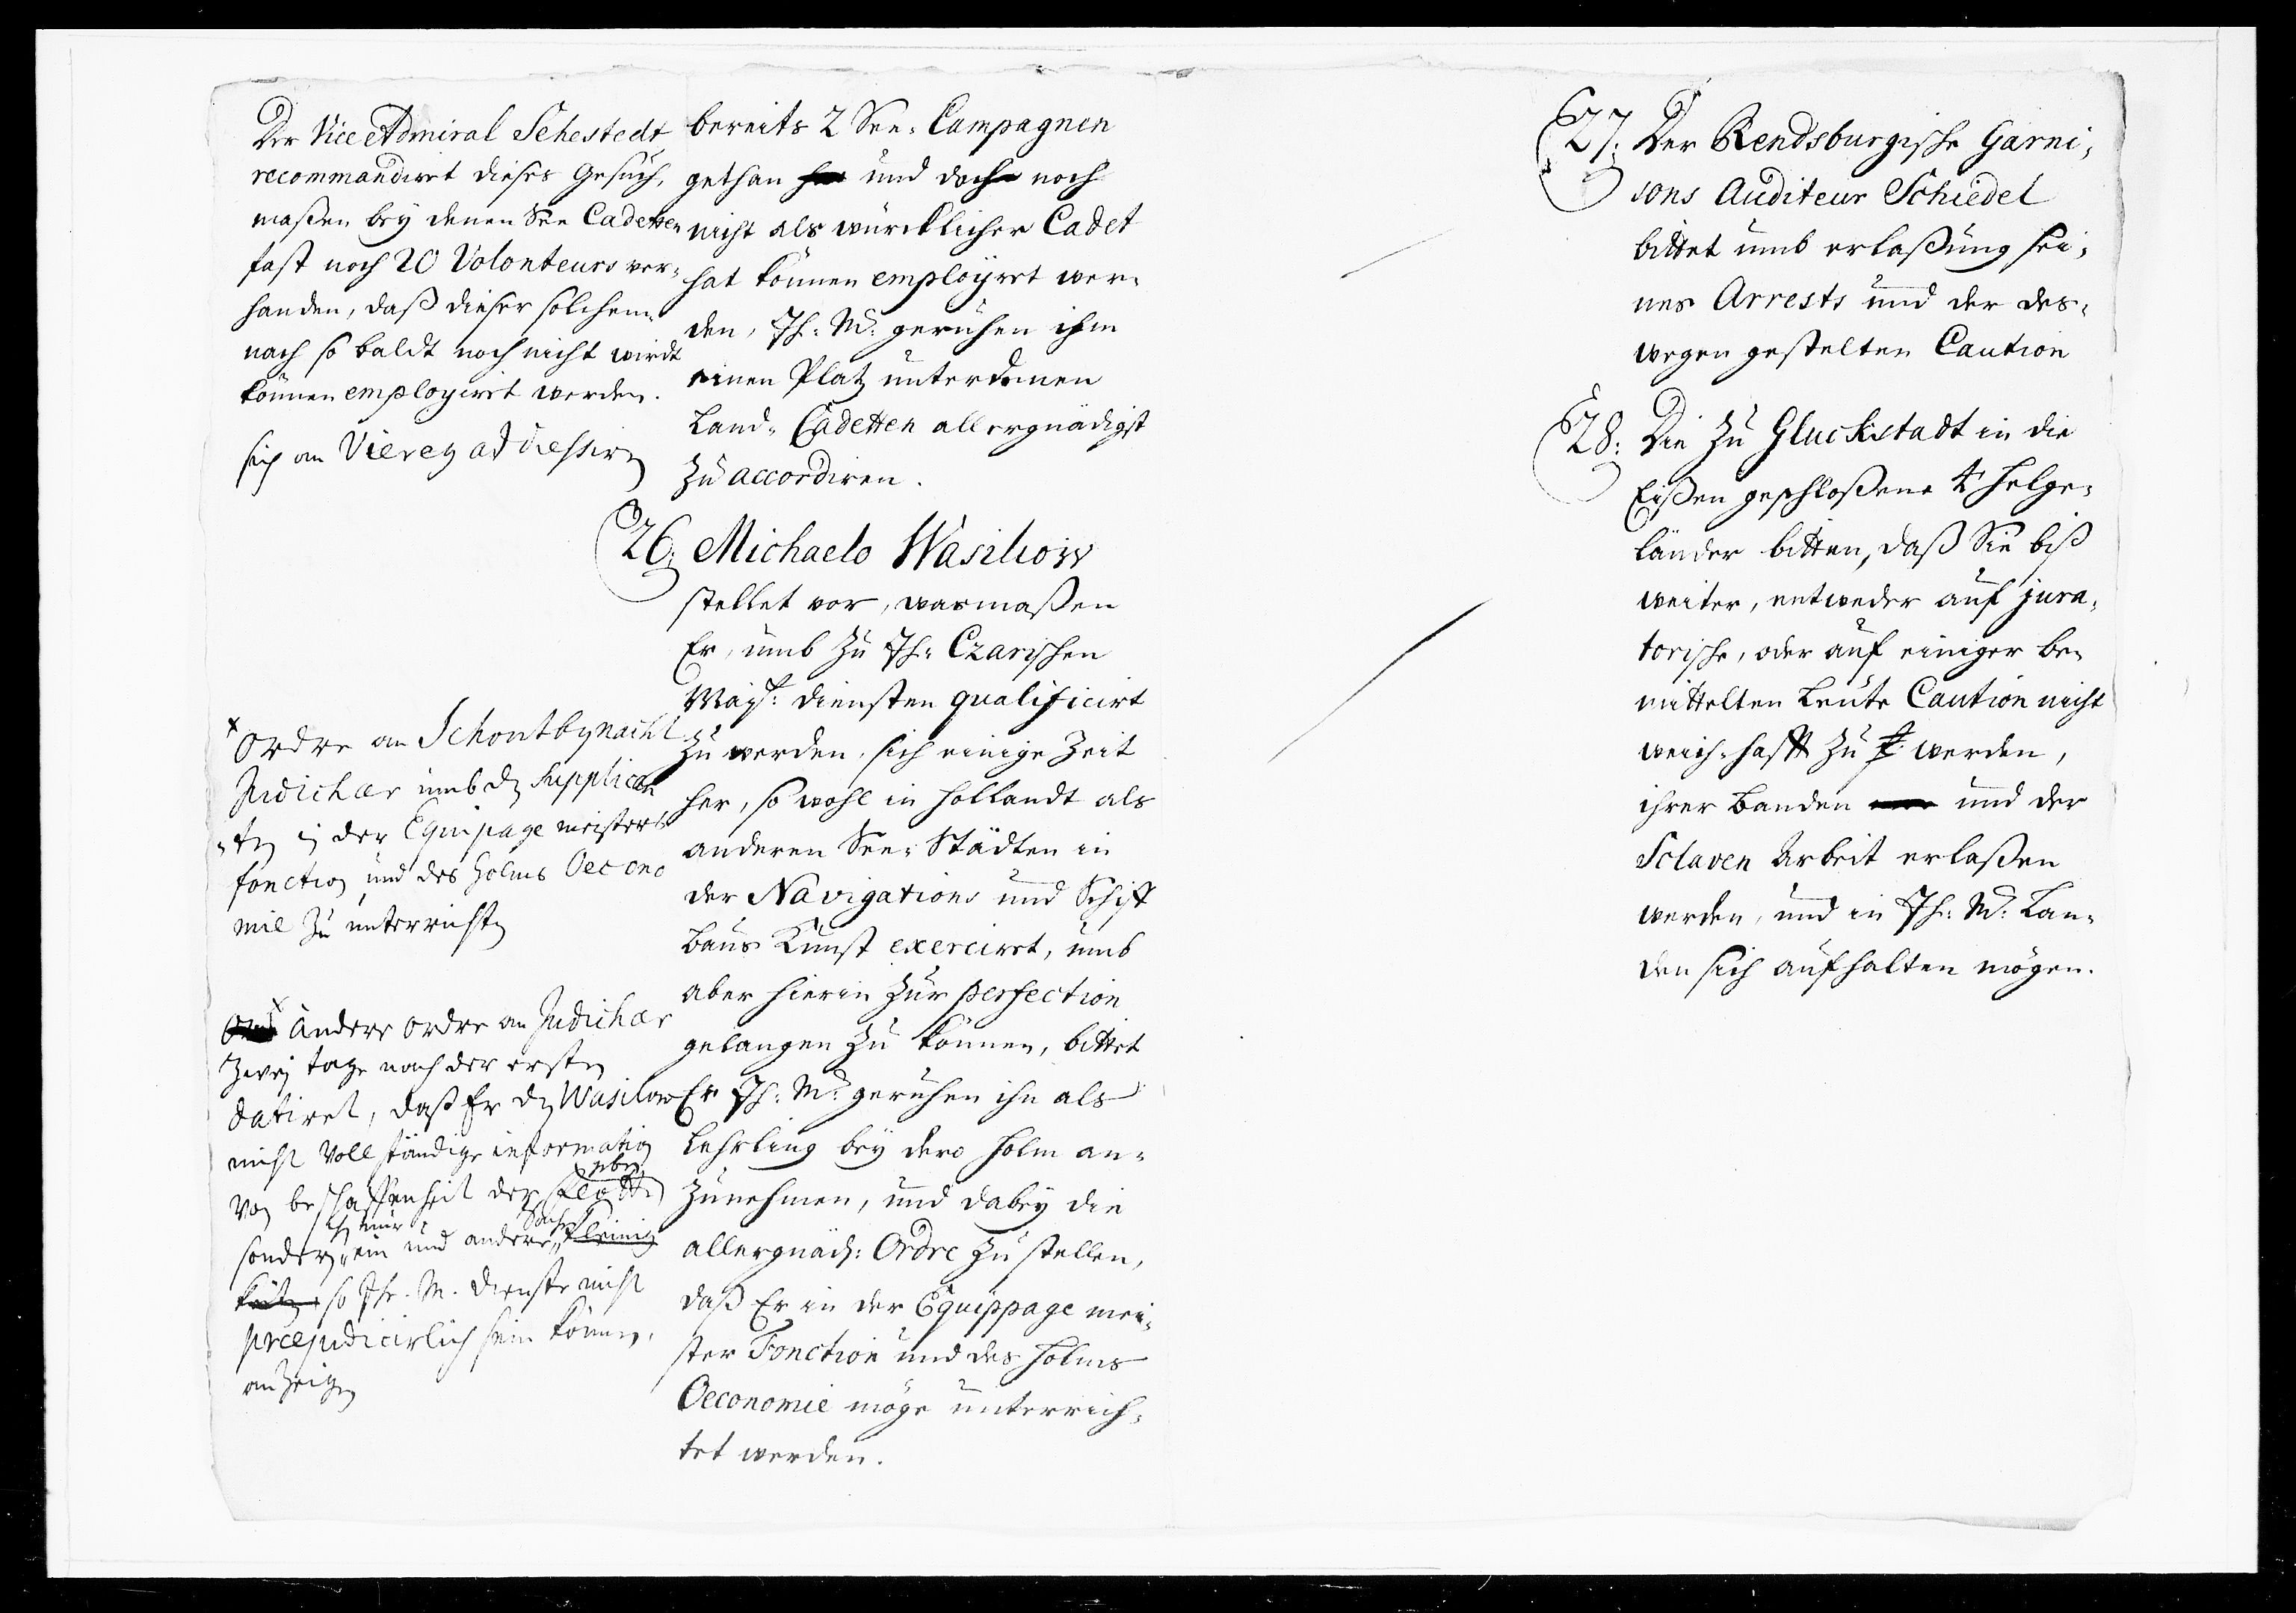 Der Vice Admiral Sehestedt
recommandiret dieses Gesuch,
maßen bey denen See Cadetten
fast noch 20 Volonteurs vor-
handen, daß dieser solchem-
nach so baldt noch nicht wirdt
können employiret werden.
sich an Vieregg addressiren
bereits 2 See-Campagnen
gethan und doch noch
nicht als würcklicher Cadet
hat können employiret wer-
den, Ih: M: geruhen ihm
einen Platz unter denen
Land-Cadetten allergnädigst
zu accordiren.
26. Michaelo Wasiliow
stellet vor, wasmaßen
Er, umb zu Ih: Czarischen
Mayt: diensten qualificirt
zu werden, sich einige Zeit
her, so wohl in Hollandt als
anderen See-Städten in
der Navigations und Schiff
baus Kunst exerciret, umb
aber hierin zur perfection
gelangen zu können, bittet
Er Ih: M: geruhen ihn als
Lehrling bey dero Holm an-
zunehmen, und dabey die
allergnäd: Ordre zu stellen,
daß Er in der Equippage mei-
ster Fonction und des Holms
Oeconomie möge unterrich-
tet werden.
x Ordre an Schoutbynacht
Judichær umb den Supplican
-ten in der Equipage meisters
fonction und des Holms Oecono
mie zu unterrichten
x andere ordre an Judichær
zwey tage nach der ersten
datiret, daß Er den Wasilow
nicht vollständige information
von beschaffenheit der Flotte eben
sondern ihm nur ein und andere Sachen Kleinig
keiten so Ihr. M. dienste nicht
præjudicirlich sein können,
anzeigen
27. Der Rendsburgische Garni-
sons Auditeur Schiedel
bittet umb erlaßung sei-
nes Arrests und der des-
wegen gestelten Caution
28. Die zu Gluckstadt in die
Eißen geschloßene 4 Helge-
länder bitten, daß Sie biß
weiter, entweder auf jura-
torische, oder auf einiger be-
mittelten Leute Caution nicht
weich-hafft zu werden,
ihrer Banden und der
Sclaven Arbeit erlaßen
werden, und in Ih: M: Lan-
den sich aufhalten mögen.